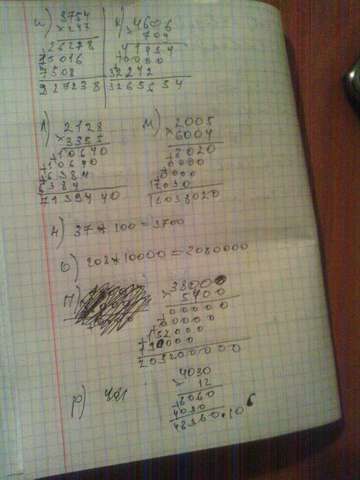 и) 3754
× 247
26278
15016
7508
927238
к) 4606
× 709
41454
0000
32242
3265654
л) 2128
× 3355
10640
10640
6384
6384
7139440
м) 2005
× 6004
8020
0000
0000
12030
12038020
н) 37*100=3700
о) 208*10000=2080000
п)
38000
× 5400
00000
00000
152000
190000
205200000
р)
4030
× 12
8060
4030
48360·10⁶